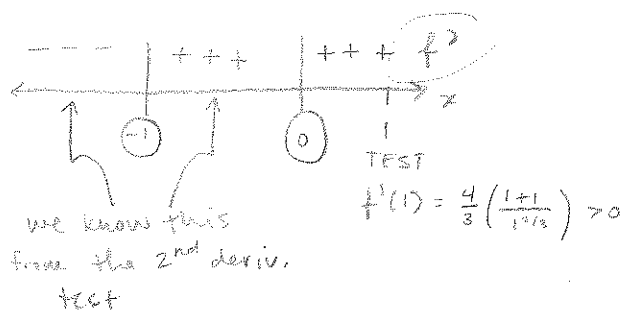 - - - + + + + + + f'
x
-1 0 1
TEST
f'(1) = 4/3 (1+1 / 1^2/3) > 0
we know this
from the 2nd deriv.
test